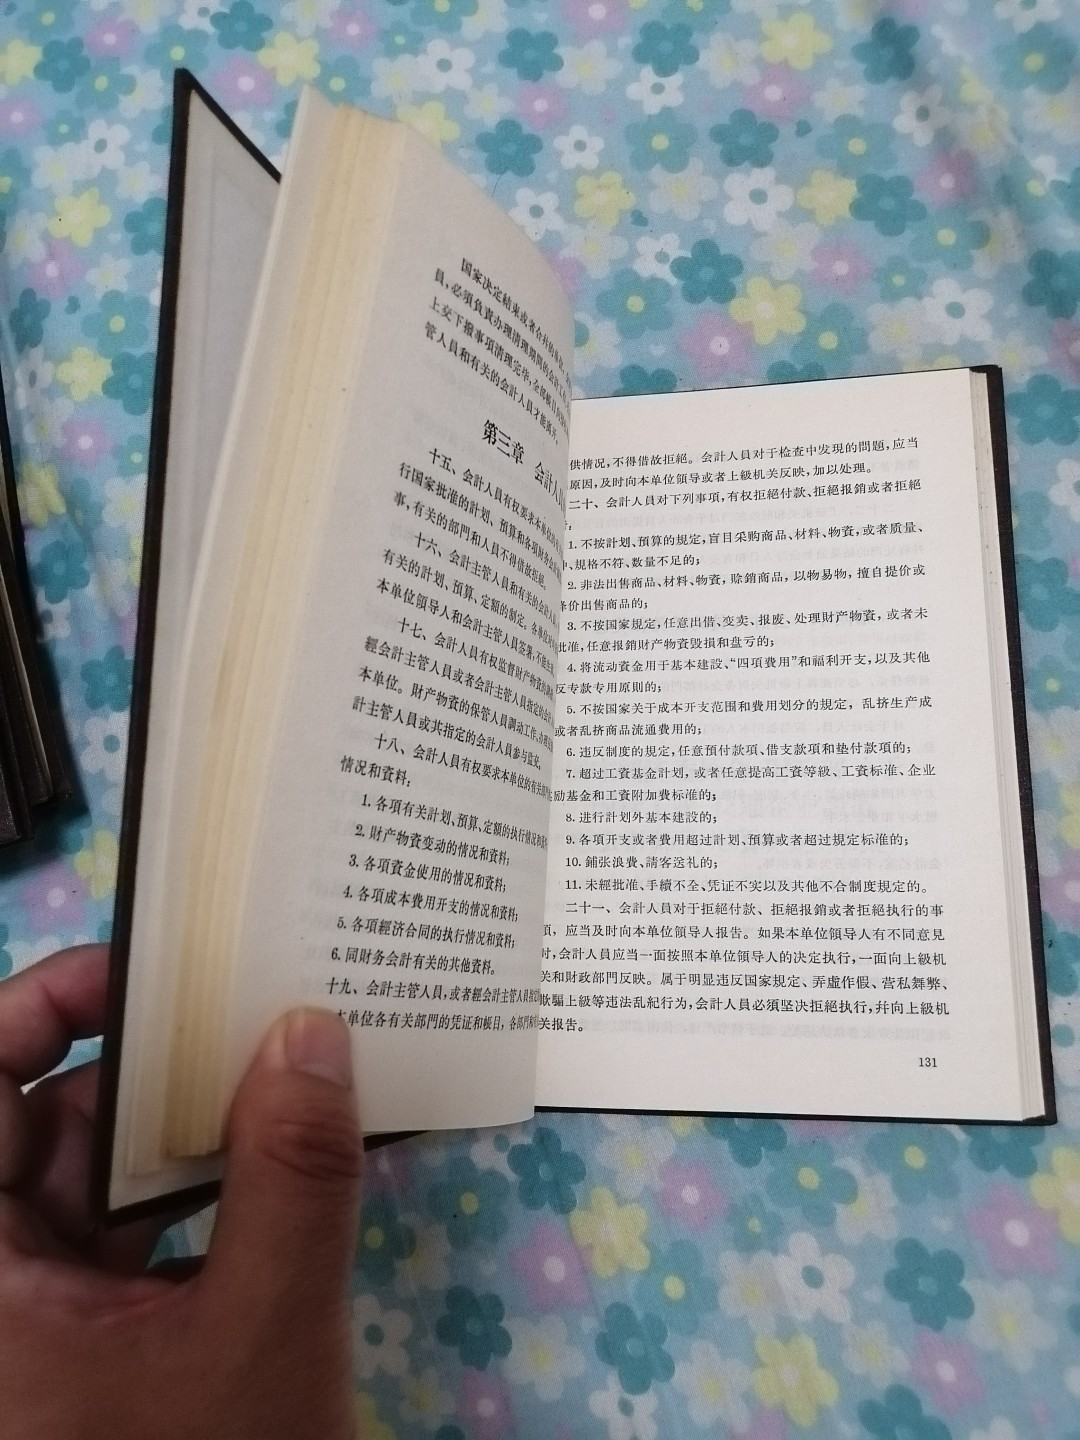 国家决定結束或者合幷的单位,
員,必須負責办理清理期間的会計工作
上交下撥事項清理完毕,全部帳目
管人員和有关的会計人員才能离开。
第三章 会計人員
十五、会計人員有权要求本单位
行国家批准的計划、預算和各項財务会計
事,有关的部門和人員不得借故拒絕。
十六、会計主管人員和有关的会計人員
有关的計划、預算、定額的制定。各单位
本单位領导人和会計主管人員签署,不能
十七、会計人員有权监督財产物資的
經会計主管人員或者会計主管人員指定的会計
本单位。財产物資的保管人員調动工作,办理
計主管人員或其指定的会計人員参与监交。
十八、会計人員有权要求本单位的有关部門
情况和資料:
1. 各項有关計划、預算、定額的执行情况和
2. 財产物資变动的情况和資料;
3. 各項資金使用的情况和資料;
4. 各項成本費用开支的情况和資料;
5. 各項經济合同的执行情况和資料;
6. 同財务会計有关的其他資料。
十九、会計主管人員,或者經会計主管人員指定
本单位各有关部門的凭证和帳目,各部門和
供情况,不得借故拒絕。会計人員对于检查中发現的問題,应当
原因,及时向本单位領导或者上級机关反映,加以处理。
二十、会計人員对下列事項,有权拒絕付款、拒絕报銷或者拒絕
:
1. 不按計划、預算的規定,盲目采购商品、材料、物資,或者质量、
、規格不符、数量不足的;
2. 非法出售商品、材料、物資,賒銷商品,以物易物,擅自提价或
价出售商品的;
3. 不按国家規定,任意出借、变卖、报废、处理財产物資,或者未
批准,任意报銷財产物資毁損和盘亏的;
4. 将流动資金用于基本建設、“四項費用”和福利开支,以及其他
反专款专用原則的;
5. 不按国家关于成本开支范围和費用划分的規定,乱挤生产成
或者乱挤商品流通費用的;
6. 违反制度的規定,任意預付款項、借支款項和垫付款項的;
7. 超过工資基金計划,或者任意提高工資等級、工資标准、企业
励基金和工資附加費标准的;
8. 进行計划外基本建設的;
9. 各項开支或者費用超过計划、預算或者超过規定标准的;
10. 鋪张浪費、請客送礼的;
11. 未經批准、手續不全、凭证不实以及其他不合制度規定的。
二十一、会計人員对于拒絕付款、拒絕报銷或者拒絕执行的事
項,应当及时向本单位領导人报告。如果本单位領导人有不同意見
时,会計人員应当一面按照本单位領导人的决定执行,一面向上級机
关和財政部門反映。属于明显违反国家規定、弄虛作假、营私舞弊、
欺騙上級等违法乱紀行为,会計人員必須坚决拒絕执行,幷向上級机
关报告。
131